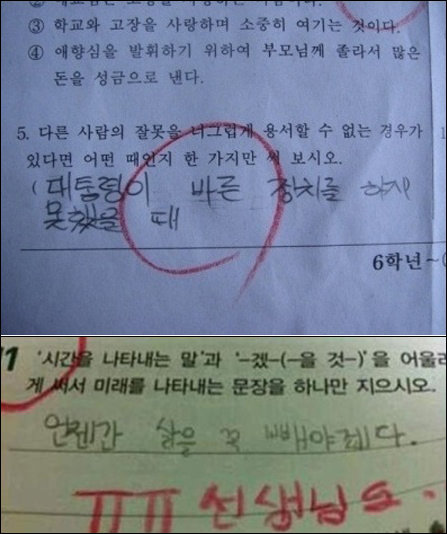 ③ 학교와 고장을 사랑하며 소중히 여기는 것이다.
④ 애향심을 발휘하기 위하여 부모님께 졸라서 많은
돈을 성금으로 낸다.
5. 다른 사람의 잘못을 너그럽게 용서할 수 없는 경우가
있다면 어떤 때인지 한 가지만 써 보시오.
( 대통령이 바른 정치를 하지
못했을 때
6학년~
11 '시간을 나타내는 말'과 '-겠-(-을 것-)'을 어울리
게 써서 미래를 나타내는 문장을 하나만 지으시오.
언젠간 살을 꼭 빼야겠다.
ㅠㅠ 선생님도.